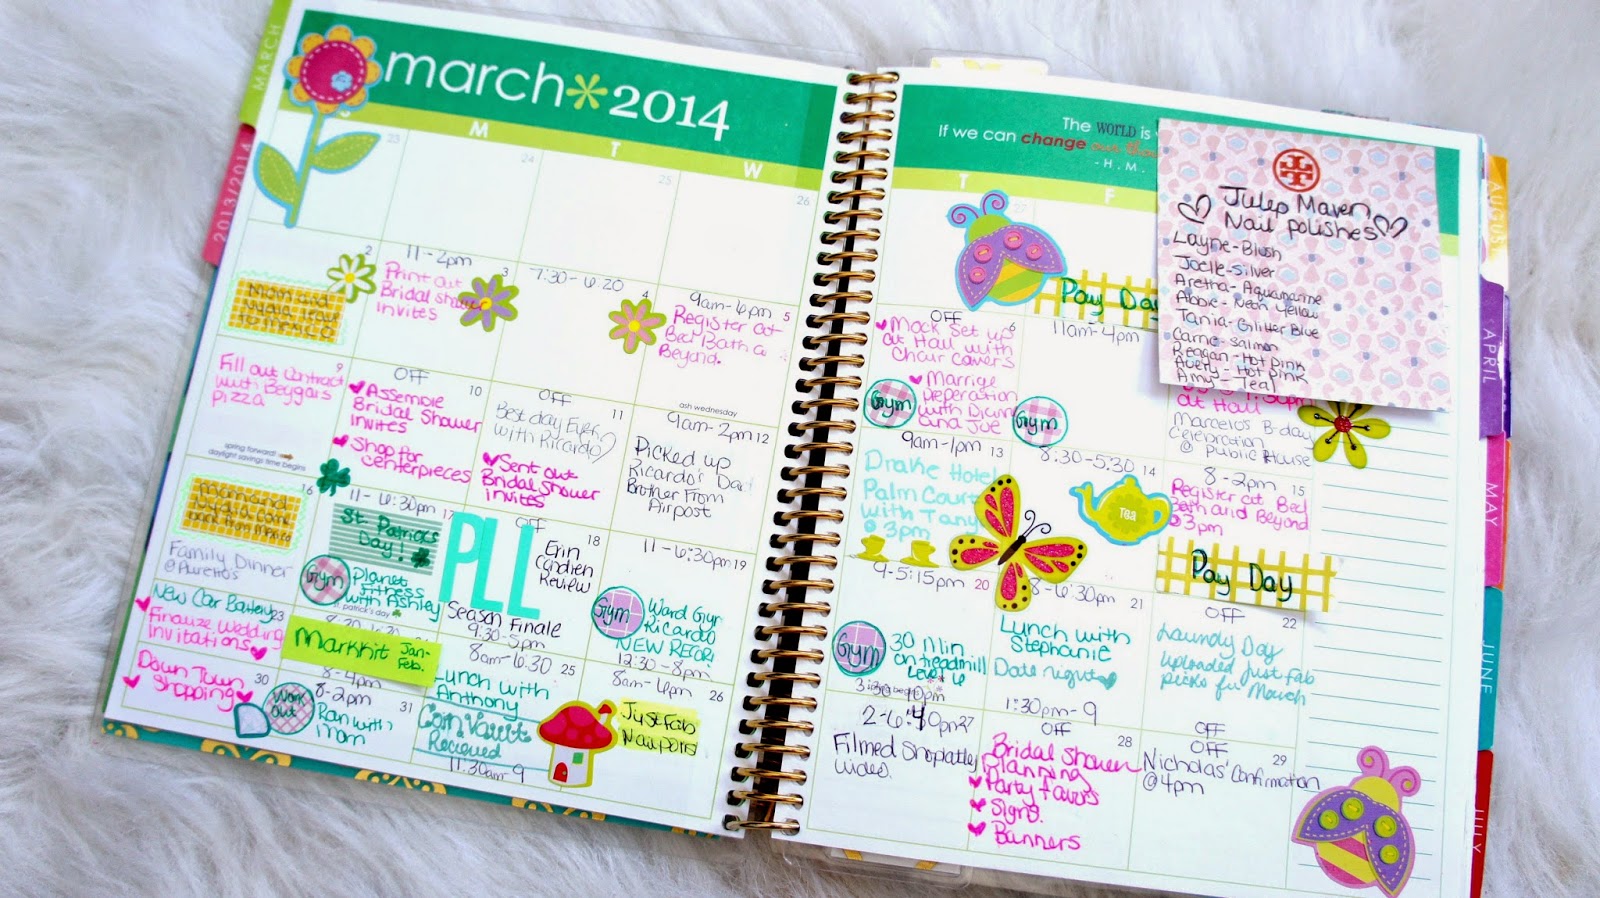 MARCH
2013/2014
march*2014
M
T
W
23
24
25
26
2
Mom and
3
11-2pm
Print out
Bridal shower
invites
4
7:30-6:20
5
9am-6pm
Register at
Bed Bath &
Beyond.
ash wednesday
9
Fill out contract
with Beggars
pizza
spring forward!
daylight savings time begins
10
OFF
Assemble
Bridal Shower
Invites
Shop for
centerpieces
11
OFF
Best day Ever
with Ricardo
Sent out
Bridal Shower
invites
12
9am-2pm
Picked up
Ricardo's Dad
Brother From
Airpost
16
Mom and
Family Dinner
17
11-6:30pm
St. Patrick's
Day!
Gym
Planet
Fitness
with Ashley
st. patrick's day
18
OFF
PLL
Erin
Condren
Review
Season Finale
19
11-6:30pm
Gym
Ward Gym
Ricardo
NEW RECORD
23
New Car Battery
Finalize Wedding
Invitations
Markkit Jan-
Feb.
8-4pm
9:30-5pm
25
8am-6:30
Lunch with
Anthony
12:30-8pm
26
8am-4pm
30
Down Town
Shopping
31
8-2pm
Work
out
Ran with
mom
Coin Vault
Recieved
11:30am-9
JustFab
Nail polis
The WORLD is
If we can change our thou
-H.M.
T
F
27
Pay Day
6
OFF
Mock set up
at Hall with
Chair covers
Marrige
Peperation
with Diana
and Joe
Gym
11am-4pm
Gym
at Hall
Marcelo's B-day
Celebration
@ public House
13
9am-1pm
Drake Hotel
Palm Court
with Tany
@ 3pm
14
8:30-5:30
Tea
15
8-2pm
Register at Bed
Bath and Beyond
@ 3pm
Pay Day
20
9-5:15pm
Gym
30 Min
on treadmill
Level 6
21
8-6:30pm
Lunch with
Stephanie
Date night
22
OFF
Laundy Day
Uploaded Just Fab
picks for March
27
2-6:40pm
Filmed Shoplately
vides.
1:30pm-9
28
OFF
Bridal Shower
Planning
Party favors
Signs
Banners
OFF
29
OFF
Nicholas' Confirmation
@ 4pm
Julep Maven
Nail Polishes
Layne-Blush
Joelle-Silver
Aretha-Aquamarine
Abbie-Neon Yellow
Tania-Glitter Blue
Carrie-Salmon
Reagan-Hot pink
Avery-Hot Pink
Amy-Teal
AUGUST
APRIL
MAY
JUNE
JULY